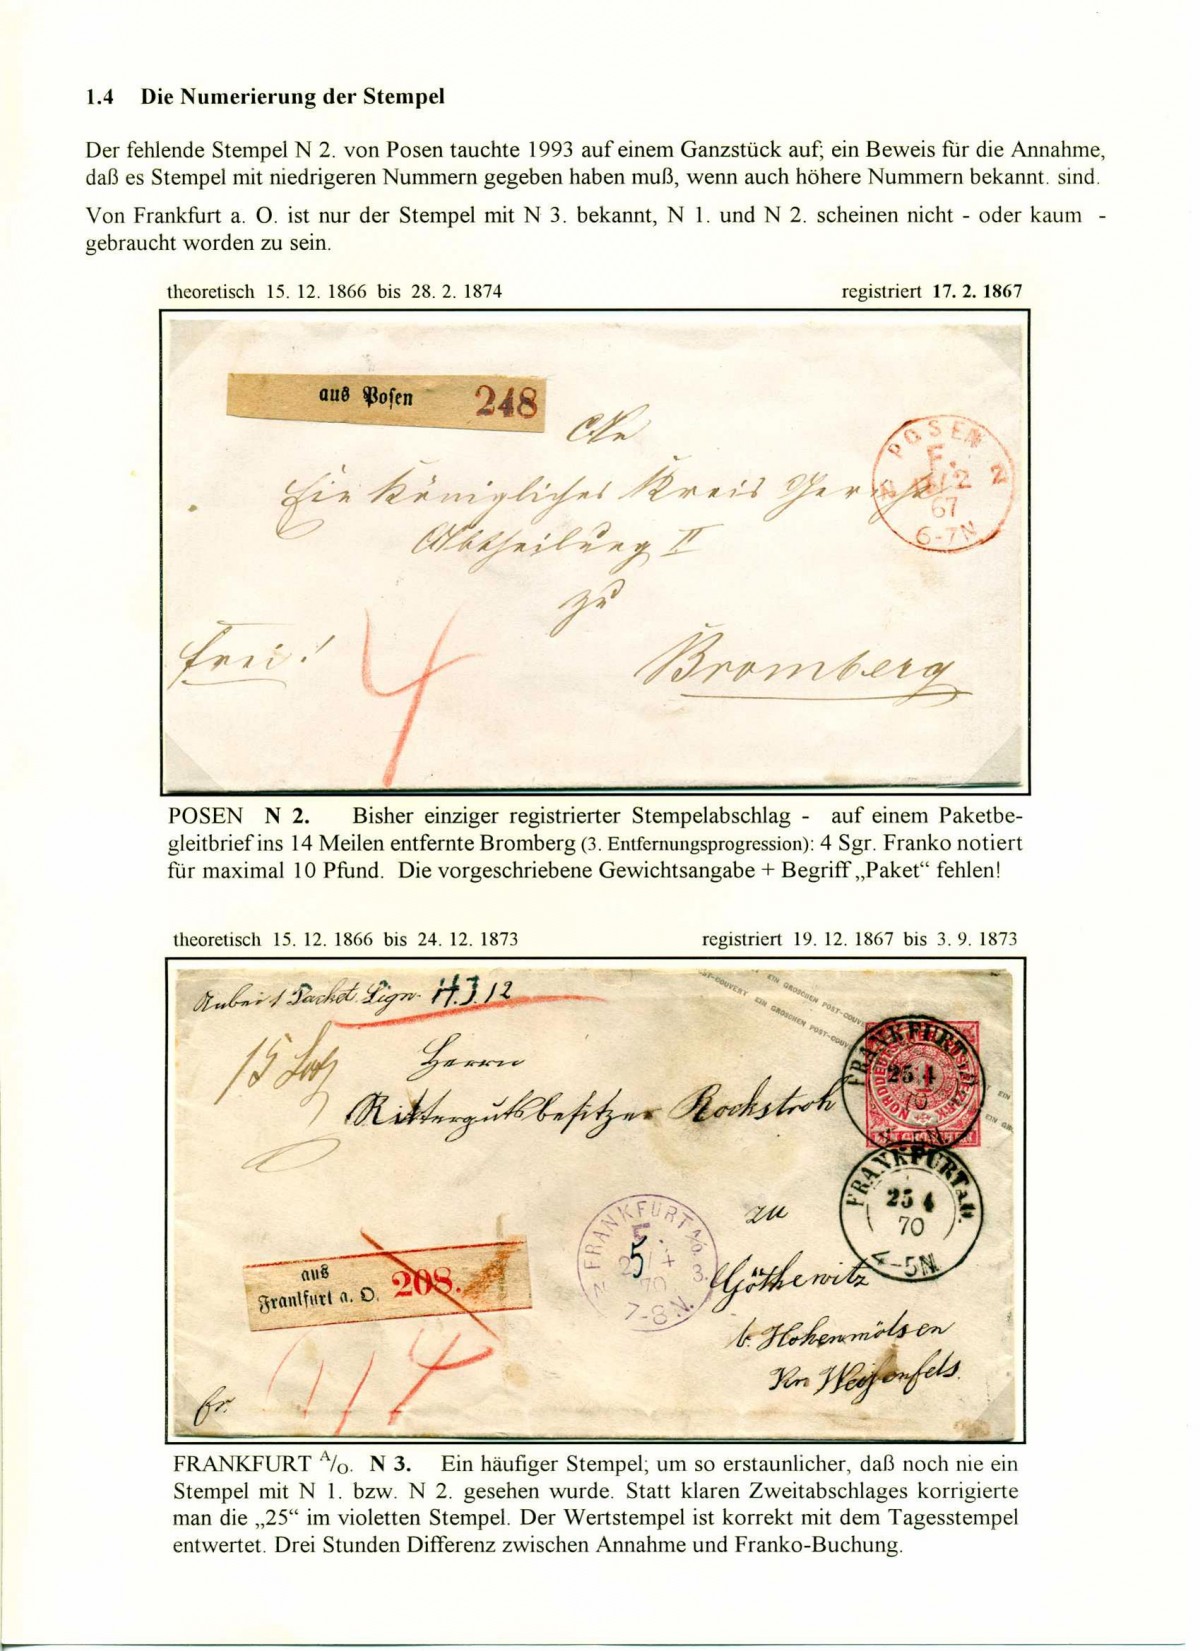 1.4 Die Numerierung der Stempel
Der fehlende Stempel N 2. von Posen tauchte 1993 auf einem Ganzstück auf; ein Beweis für die Annahme,
daß es Stempel mit niedrigeren Nummern gegeben haben muß, wenn auch höhere Nummern bekannt. sind.
Von Frankfurt a. O. ist nur der Stempel mit N 3. bekannt, N 1. und N 2. scheinen nicht - oder kaum -
gebraucht worden zu sein.
theoretisch 15. 12. 1866 bis 28. 2. 1874 registriert 17. 2. 1867
aus Posen 248
An
Ein Königliches Kreis Gericht
Abtheilung II
zu
Bromberg
frei!
4
POSEN N
F.
/2
67
6-7N
POSEN N 2. Bisher einziger registrierter Stempelabschlag - auf einem Paketbe-
gleitbrief ins 14 Meilen entfernte Bromberg (3. Entfernungsprogression): 4 Sgr. Franko notiert
für maximal 10 Pfund. Die vorgeschriebene Gewichtsangabe + Begriff „Paket“ fehlen!
theoretisch 15. 12. 1866 bis 24. 12. 1873 registriert 19. 12. 1867 bis 3. 9. 1873
Anbei 1 Packet Sign. H.J.12
15 Loth
Herrn
Rittergutsbesitzer Rockstroh
zu
Göthewitz
b. Hohenmölsen
Krs Weißenfels.
fr.
EIN GROSCHEN POST-COUVERT EIN GROSCHEN POST-COUV
FRANKFURT
25 4
70
FRANKFURT a.O.
25 4
70
4-5N
N FRANKFURT A/O. 3.
F.
5
70
7-8 N.
aus
Frankfurt a. O. 208.
4
FRANKFURT A/O. N 3. Ein häufiger Stempel; um so erstaunlicher, daß noch nie ein
Stempel mit N 1. bzw. N 2. gesehen wurde. Statt klaren Zweitabschlages korrigierte
man die „25“ im violetten Stempel. Der Wertstempel ist korrekt mit dem Tagesstempel
entwertet. Drei Stunden Differenz zwischen Annahme und Franko-Buchung.